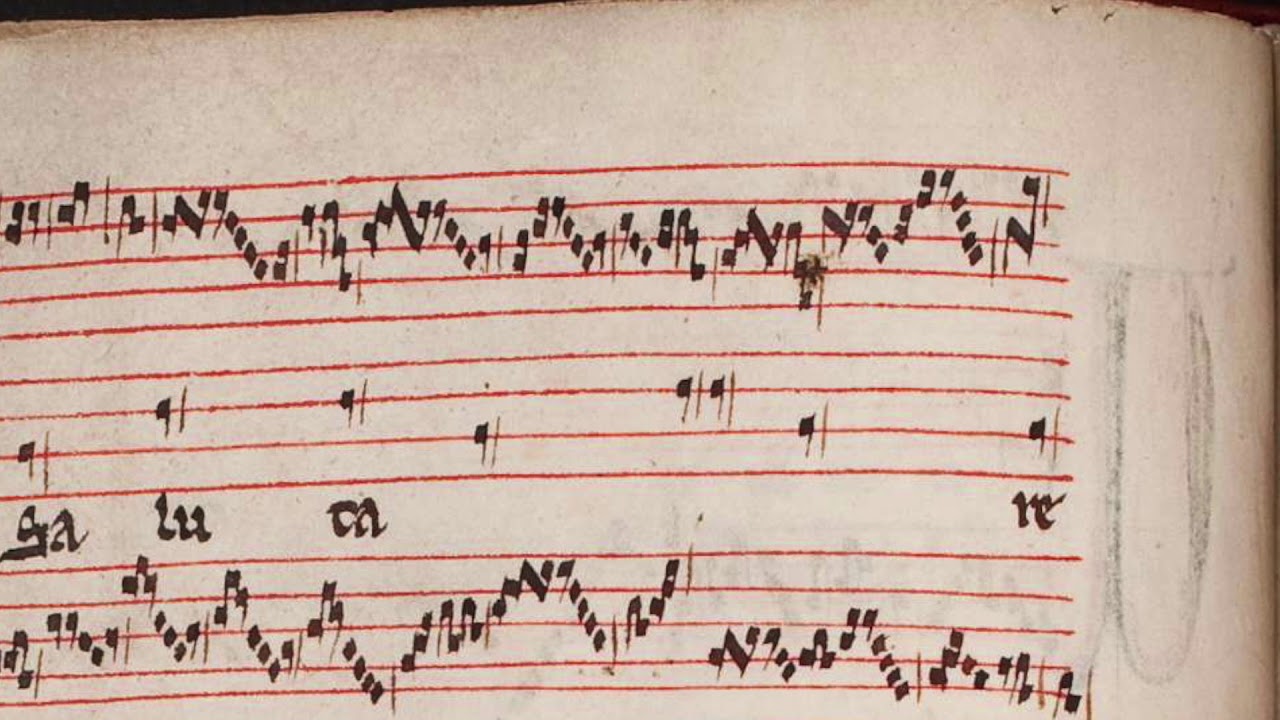 Sa lu ta re